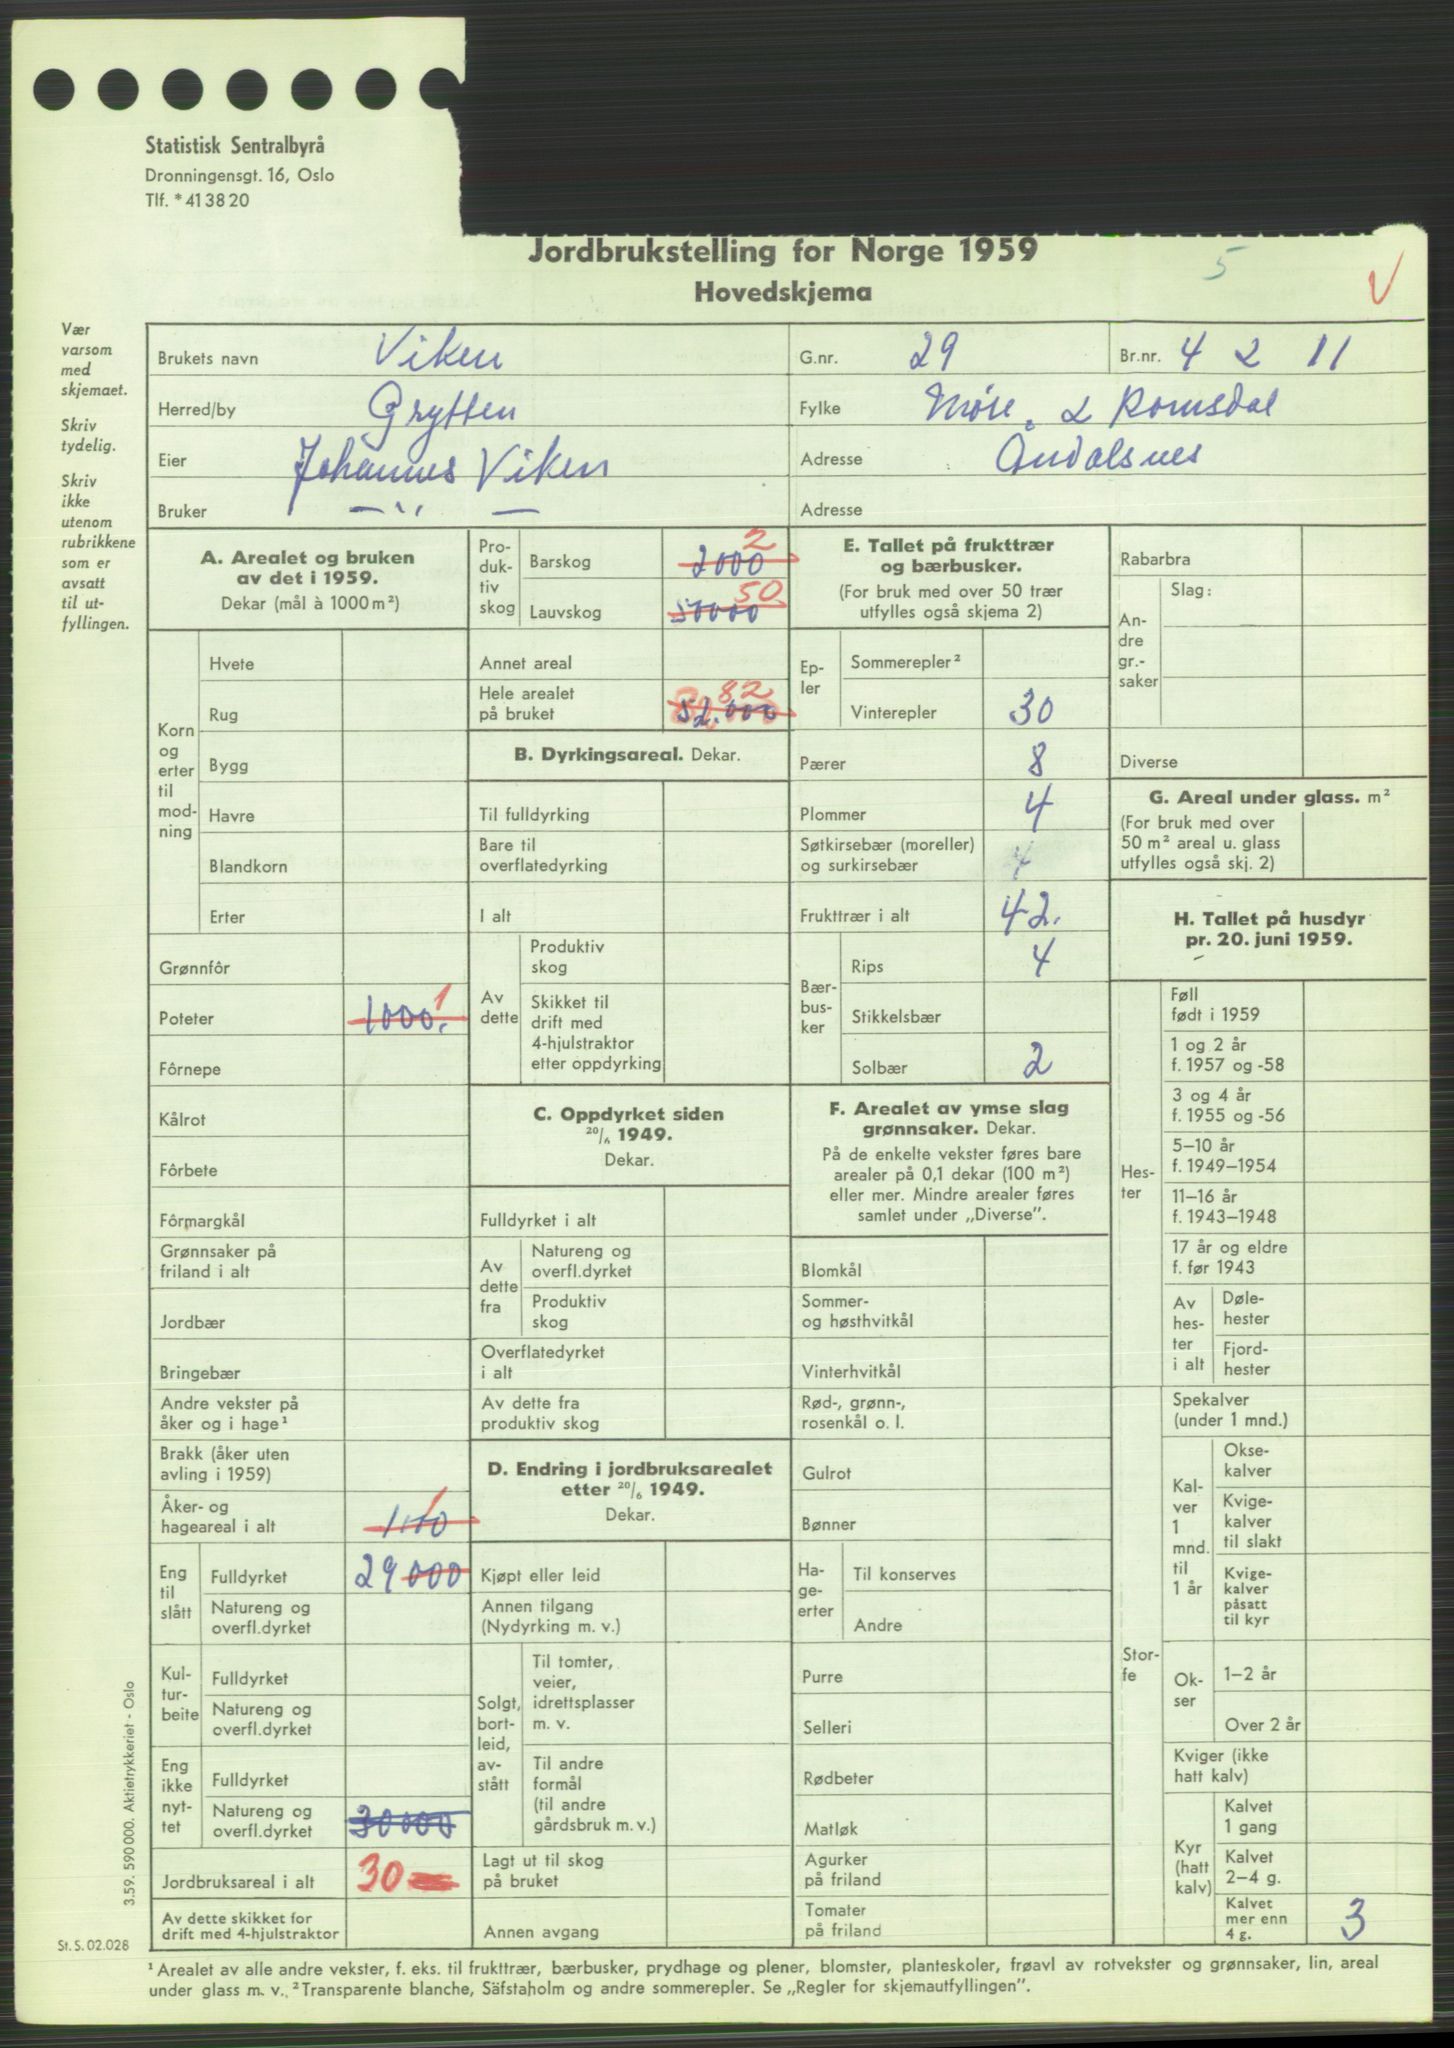 Statistisk Sentralbyrå
Dronningensgt. 16, Oslo
Tlf. *41 38 20
Jordbrukstelling for Norge 1959
5
V
Hovedskjema
Vær
varsom
med
skjemaet.
Skriv
tydelig.
Skriv
ikke
utenom
rubrikkene
som er
avsatt
til ut-
fyllingen.
Brukets navn Viken G.nr. 29 Br.nr. 4 2 11
Herred/by Grytten Fylke Møre & Romsdal
Eier Johannes Viken Adresse Åndalsnes
Bruker — " — Adresse
A. Arealet og bruken
av det i 1959.
Dekar (mål à 1000 m²)
Korn
og
erter
til
mod-
ning
Hvete
Rug
Bygg
Havre
Blandkorn
Erter
Grønnfôr
Poteter 1000. 1
Fôrnepe
Kålrot
Fôrbete
Fôrmargkål
Grønnsaker på
friland i alt
Jordbær
Bringebær
Andre vekster på
åker og i hage¹
Brakk (åker uten
avling i 1959)
Åker- og
hageareal i alt 1
Eng
til
slått
Fulldyrket 29000
Natureng og
overfl.dyrket
Kul-
tur-
beite
Fulldyrket
Natureng og
overfl.dyrket
Eng
ikke
nyt-
tet
Fulldyrket
Natureng og
overfl.dyrket 30000
Jordbruksareal i alt 30
Av dette skikket for
drift med 4-hjulstraktor
Pro-
duk-
tiv
skog
Barskog 2000 2
Lauvskog 50000 50
Annet areal
Hele arealet
på bruket 52.000 82
B. Dyrkingsareal. Dekar.
Til fulldyrking
Bare til
overflatedyrking
I alt
Av
dette
Produktiv
skog
Skikket til
drift med
4-hjulstraktor
etter oppdyrking
C. Oppdyrket siden
20/6 1949.
Dekar.
Fulldyrket i alt
Av
dette
fra
Natureng og
overfl.dyrket
Produktiv
skog
Overflatedyrket
i alt
Av dette fra
produktiv skog
D. Endring i jordbruksarealet
etter 20/6 1949.
Dekar.
Kjøpt eller leid
Annen tilgang
(Nydyrking m. v.)
Solgt,
bort-
leid,
av-
stått
Til tomter,
veier,
idrettsplasser
m. v.
Til andre
formål
(til andre
gårdsbruk m. v.)
Lagt ut til skog
på bruket
Annen avgang
E. Tallet på frukttrær
og bærbusker.
(For bruk med over 50 trær
utfylles også skjema 2)
Ep-
ler
Sommerepler²
Vinterepler 30
Pærer 8
Plommer 4
Søtkirsebær (moreller)
og surkirsebær 4
Frukttrær i alt 42.
Bær-
bus-
ker
Rips 4
Stikkelsbær
Solbær 2
F. Arealet av ymse slag
grønnsaker. Dekar.
På de enkelte vekster føres bare
arealer på 0,1 dekar (100 m²)
eller mer. Mindre arealer føres
samlet under „Diverse”.
Blomkål
Sommer-
og høsthvitkål
Vinterhvitkål
Rød-, grønn-,
rosenkål o. l.
Gulrot
Bønner
Ha-
ge-
erter
Til konserves
Andre
Purre
Selleri
Rødbeter
Matløk
Agurker
på friland
Tomater
på friland
Rabarbra
An-
dre
gr.-
saker
Slag:
Diverse
G. Areal under glass. m²
(For bruk med over
50 m² areal u. glass
utfylles også skj. 2)
H. Tallet på husdyr
pr. 20. juni 1959.
Hes-
ter
Føll
født i 1959
1 og 2 år
f. 1957 og -58
3 og 4 år
f. 1955 og -56
5–10 år
f. 1949–1954
11–16 år
f. 1943–1948
17 år og eldre
f. før 1943
Av
hes-
ter
i alt
Døle-
hester
Fjord-
hester
Stor-
fe
Spekalver
(under 1 mnd.)
Kal-
ver
1
mnd.
til
1 år
Okse-
kalver
Kvige-
kalver
til slakt
Kvige-
kalver
påsatt
til kyr
Ok-
ser
1–2 år
Over 2 år
Kviger (ikke
hatt kalv)
Kyr
(hatt
kalv)
Kalvet
1 gang
Kalvet
2–4 g.
Kalvet
mer enn
4 g. 3
3.59. 590 000. Aktietrykkeriet - Oslo
St. S. 02.028
¹ Arealet av alle andre vekster, f. eks. til frukttrær, bærbusker, prydhage og plener, blomster, planteskoler, frøavl av rotvekster og grønnsaker, lin, areal
under glass m. v. ² Transparente blanche, Säfstaholm og andre sommerepler. Se „Regler for skjemautfyllingen”.